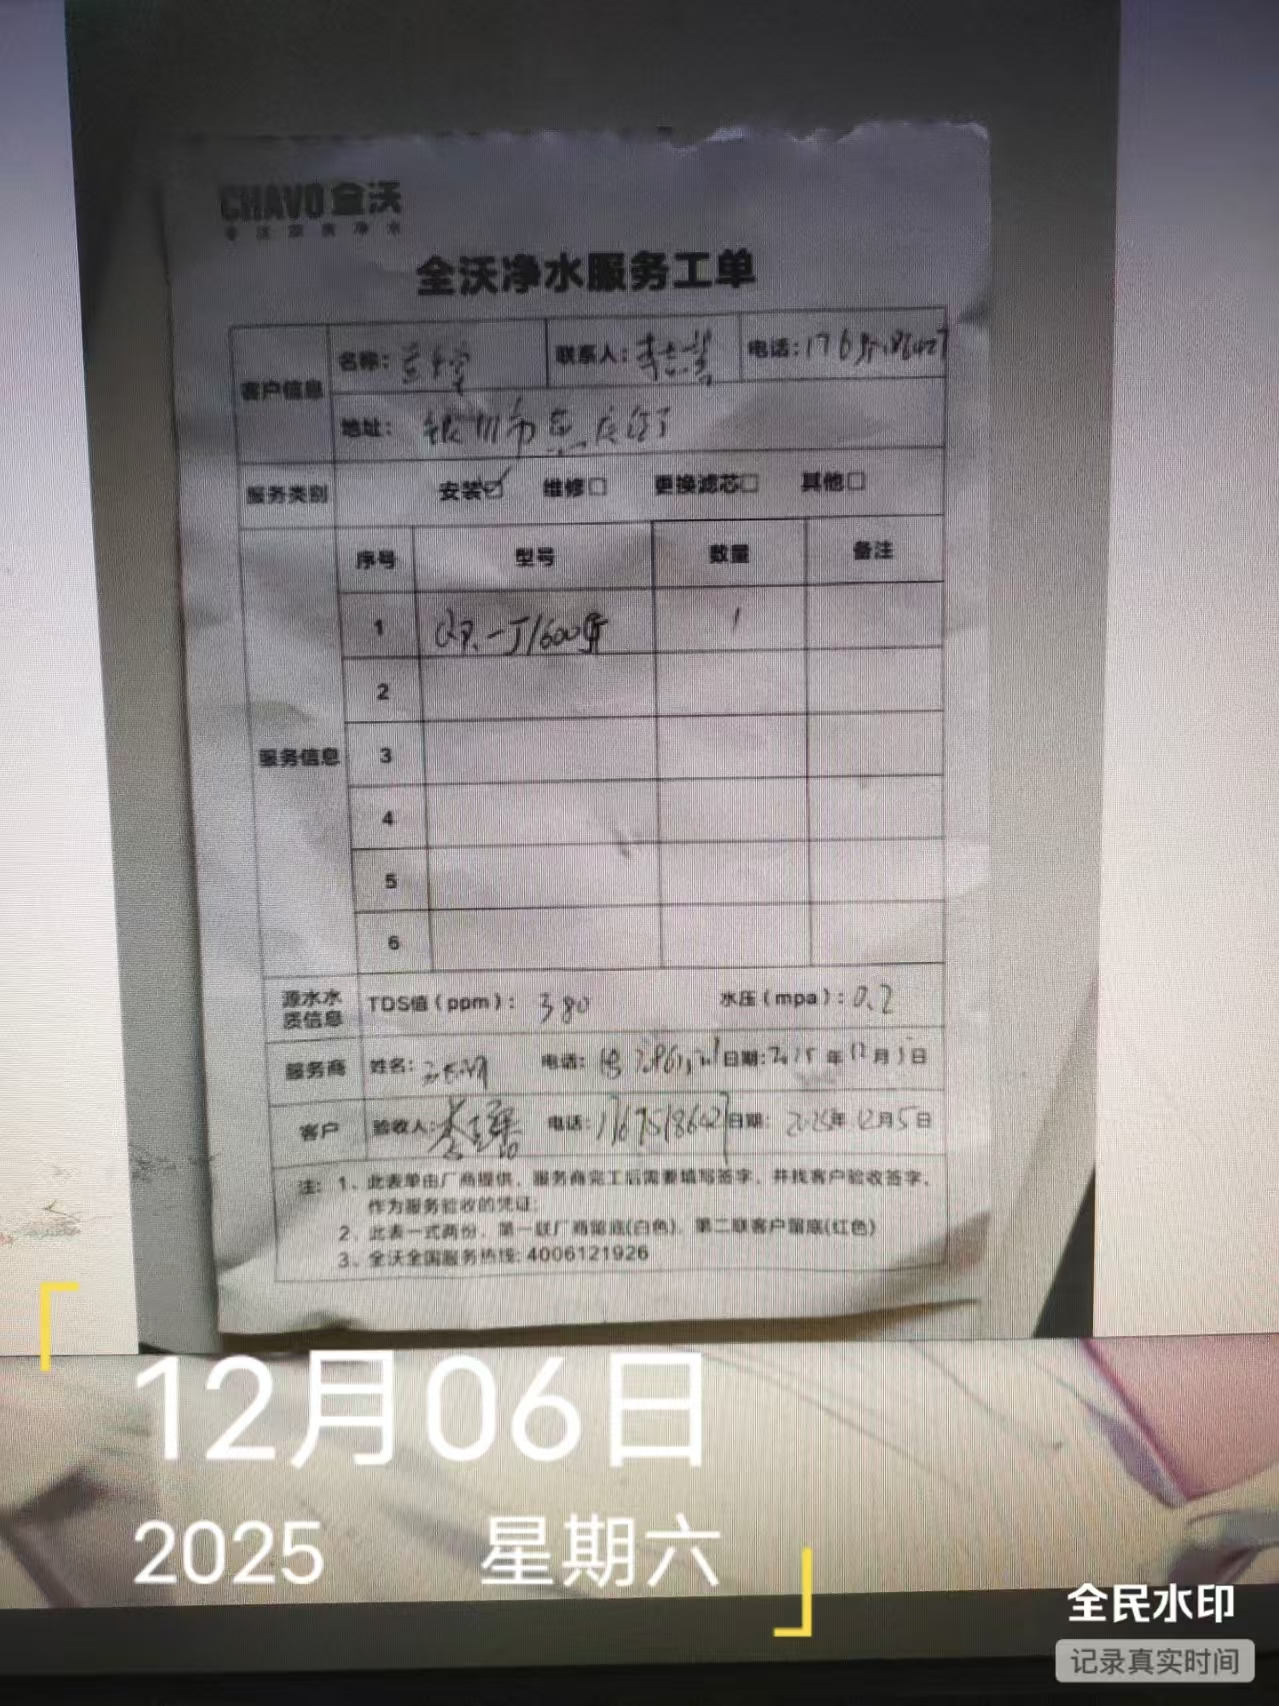 CHAVO 全沃
全沃净水服务工单
客户信息 名称: 联系人: 电话:
地址: 银川市
服务类别 安装☑ 维修□ 更换滤芯□ 其他□
序号 型号 数量 备注
1 1
2
服务信息 3
4
5
6
源水水质信息 TDS值(ppm): 380 水压(mpa): 0.2
服务商 姓名: 电话: 日期: 2025年12月5日
客户 验收人: 电话: 17675186427 日期: 2025年12月5日
注: 1、此表单由厂商提供,服务商完工后需要填写签字,并找客户验收签字,
作为服务验收的凭证;
2、此表一式两份,第一联厂商留底(白色),第二联客户留底(红色)
3、全沃全国服务热线: 4006121926
12月06日
2025 星期六
全民水印
记录真实时间